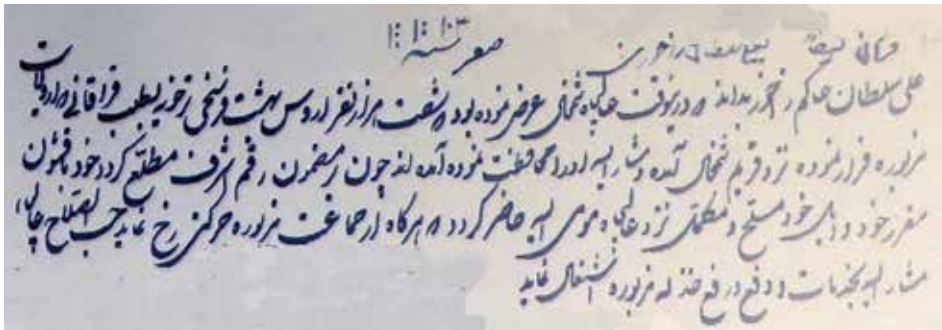 صفر سنه ۱۱۰۳
علی سلطان حاکم را خور بداند که درینوقت عالیجاه شمخال عرض نموده بود که شصت هزار نفر اروس بهشت فرسخی ترخو بطلب قراقانی که از ولایت
مزبوره فرار نموده نزد قدیم شمخال آمده و مشار الیه او را محافظت نموده آمده اند چون از مضمون رقم اشرف مطلع گردد خود با قشون
مقرر خود و ایل خود مسلح و مکمل نزد عالیجاه مومی الیه حاضر گردد که هرگاه از جماعت مزبوره حرکتی رخ نماید حسب الصلاح عالیجاه
مشار الیه بخدمات و دفع و رفع مزبوره اشتغال نماید